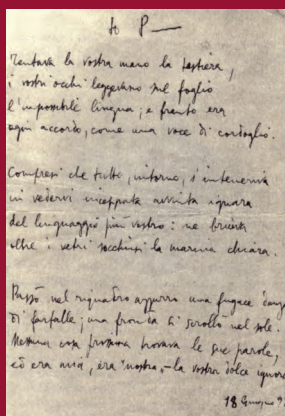 to P—
Tentava la vostra mano la tastiera,
i vostri occhi leggevano sul foglio
l'impossibile lingua; e franto era
ogni accordo, come una voce di cordoglio.
Compresi che tutto, intorno, s'inteneriva
in vedervi inceppata
del linguaggio più vostro: ne bruiva
oltre i vetri socchiusi la marina chiara.
Passò nel riquadro azzurro una fugace danza
di farfalle; una fronda si scrollò nel sole.
Nessuna cosa prossima trovava le sue parole,
ed era mia, era "nostra", la vostra dolce ignora
18 Giugno